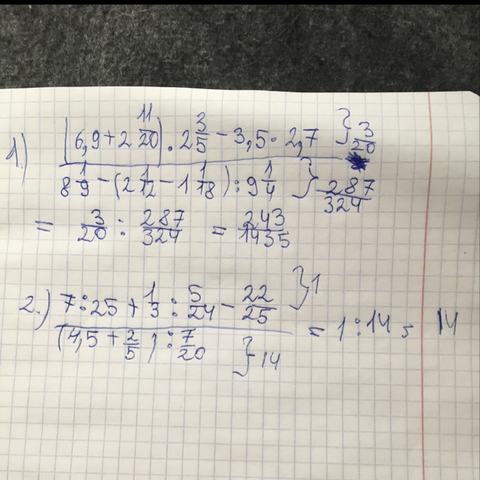 1.) (6,9 + 2 11/20) · 2 3/5 - 3,5 · 2,7 } 3/20
8 1/9 - (2 1/12 - 1 1/18) : 9 1/4 } 287/324
= 3/20 : 287/324 = 243/1435
2.) 7 : 25 + 1/3 : 5/24 - 22/25 } 1
(4,5 + 2/5) : 7/20 } 14
= 1 : 14 = 14